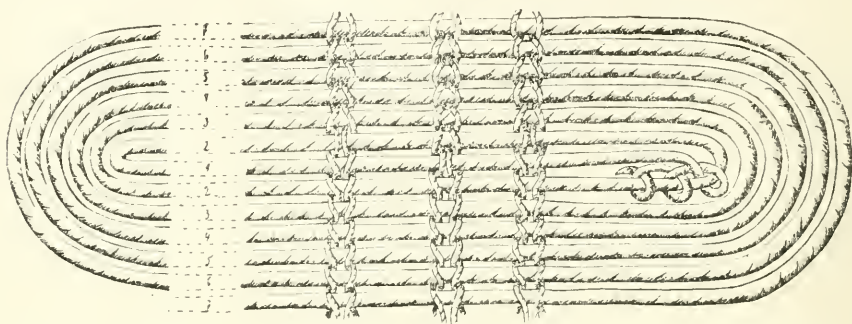 7
6
5
4
3
2
1
2
3
4
5
6
7